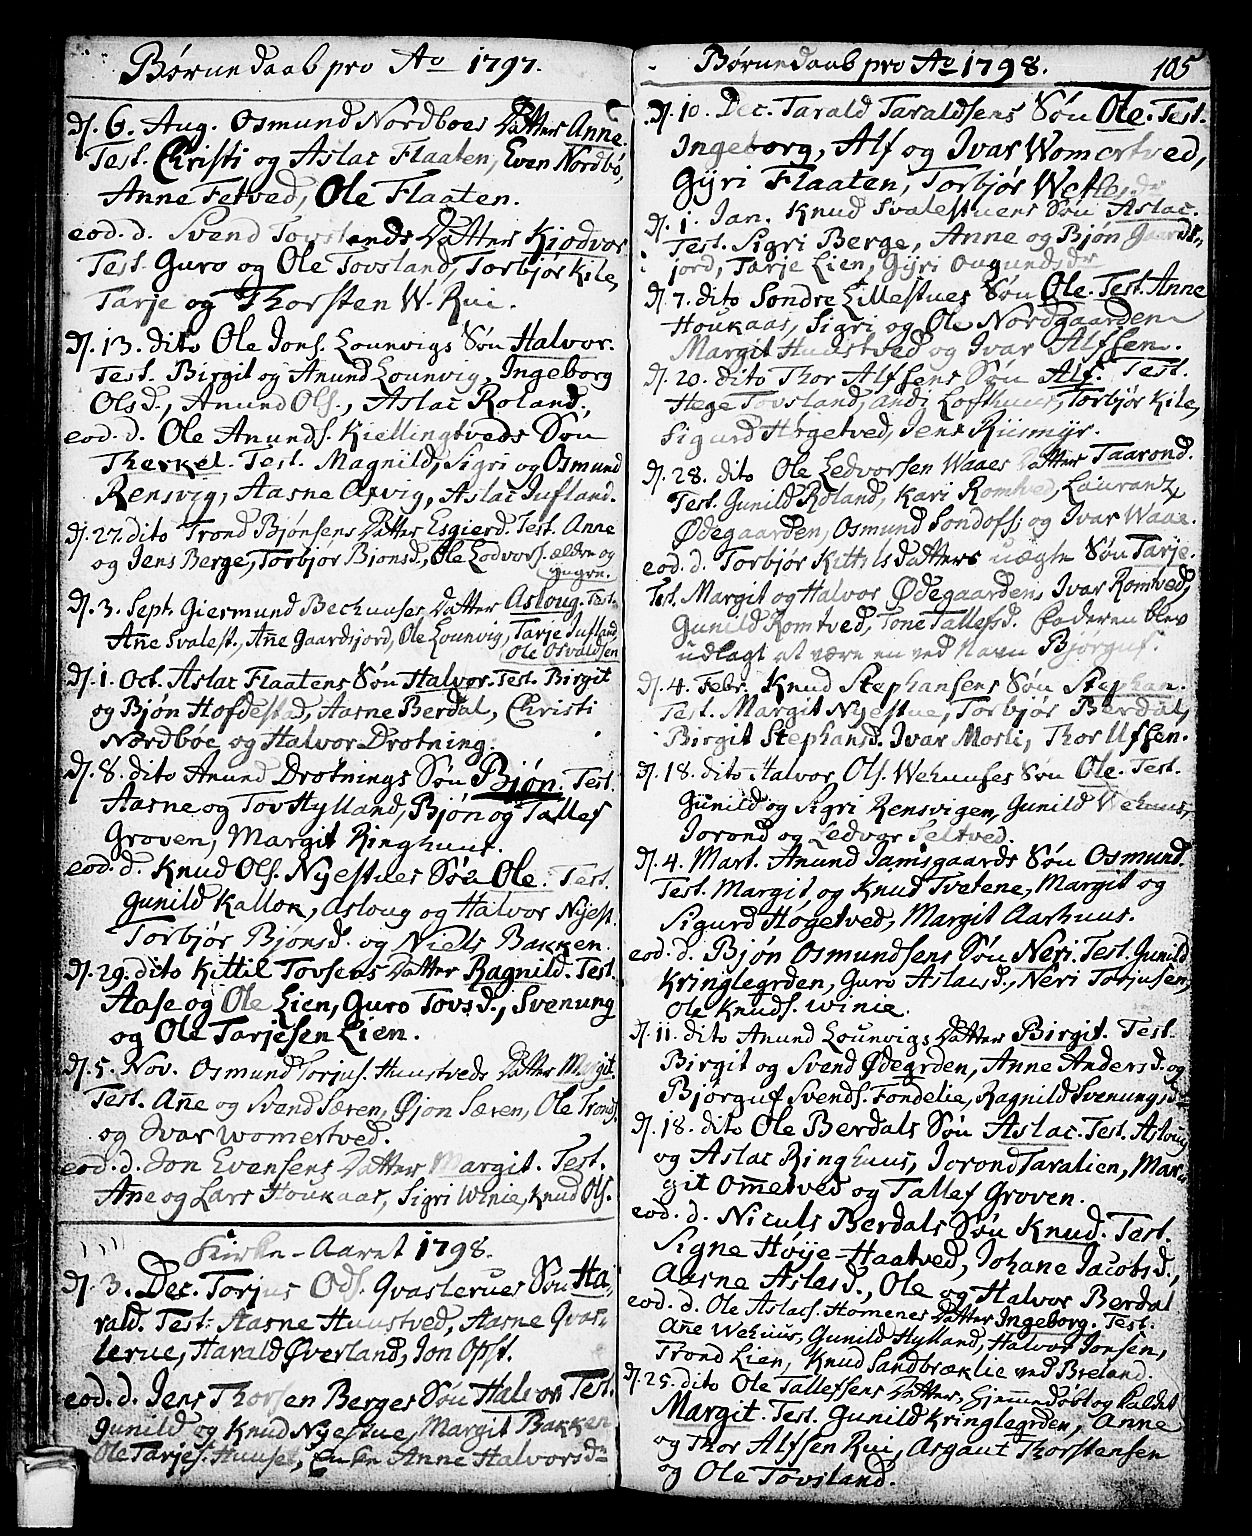 Børnedaab pro Ao 1797.
d. 6. Aug. Osmund Nordboes Datter Anne.
Test. Christi og Aslac Flaaten, Even Nordbø,
Anne Fetved, Ole Flaaten.
eod. d. Svend Tovslands Datter Kjodvor
Test. Guro og Ole Tovsland, Torbjør Kile,
Tarje og Thorsten W. Rui.
d. 13. dito Ole Jons. Lounvigs Søn Halvor.
Test. Birgit og Anund Lounvig, Ingeborg
Olsd., Anund Ols., Aslac Roland.
eod. d. Ole Anunds. Kiellingtveds Søn
Therkel. Test. Magnild, Sigri og Osmund
Rensvig, Aasne Apvig, Aslac Jufland.
d. 27. dito Trond Bjønsens Datter Esgierd. Test. Anne
og Jens Berge, Torbjør Bjonsd., Ole Lodvors. ældre og
yngre.
d. 3. Sept. Giermund Bechuuses Datter Asloug. Test.
Añe Svalest., Añe Gaardsjord, Ole Lounvig, Tarje Jufland,
Ole Osvaldsen
d. 1. Oct. Aslac Flaatens Søn Halvor. Test. Birgit
og Bjøn Hofdestad, Aasne Berdal, Christi
Nordbøe og Halvor Drotning.
d. 8. dito Anund Drotnings Søn Bjøn. Test.
Aasne og Tov Hylland, Bjøn og Tallef
Groven, Margit Ringhuus.
eod. d. Knud Ols. Nyestues Søn Ole. Test.
Gunild Kallok, Asloug og Halvor Nyest.
Torbjør Bjønsd. og Niels Bakken.
d. 29. dito Kittil Tovsens Datter Ragnild. Test.
Aase og Ole Lien, Guro Tovsd., Svenung
og Ole Tarjesen Lien.
d. 5. Nov. Osmund Torjus. Huustveds Datter Margit.
Test. Añe og Svend Særen, Bjøn Særen, Ole Tronds.
og Ivar Womertved.
eod. d. Jon Evensens Datter Margit. Test.
Añe og Lars Houkaas, Sigri Winie, Knud Ols.
Kirke-Aaret 1798.
d. 3. Dec. Torjus Ods. Qvasterues Søn Ha-
rald. Test. Aasne Huustved, Aasne Qvas-
terue, Harald Øverland, Jon Opst.
eod. d. Jens Thorsen Berges Søn Halvor Test.
Gunild og Knud Nyestue, Margit Bakken
Ole Tarjes. Huuset, Anne Halvorsdr
Børnedaab pro Ao 1798. 105
d. 10. Dec. Tarald Taraldsens Søn Ole. Test.
Ingeborg, Alf og Ivar Womertved,
Gyri Flaaten, Torbjør
d. 1. Jan. Knud Svalestuens Søn Aslac.
Test. Sigri Berge, Anne og Bjøn Gaards-
jord, Tarje Lien, Gyri Ougundsdr
d. 7. dito Sondre Lillestues Søn Ole. Test. Anne
Houkaas, Sigri og Ole Nordgaarden
Margit Huustved og Ivar Alfsen.
d. 20. dito Thor Alfsens Søn Alf. Test.
Hege Tovsland, Andi Lofthuus, Torbjør Kile,
Sigurd Høgetved, Jens Riismyr.
d. 28. dito Ole Ledvorsen Waaes Datter Taarond.
Test. Gunild Roland, Kari Romtved, Lauranz
Ødegaarden, Osmund Sondofs. og Ivar Waae.
eod. d. Torbjør Kittilsdatters uægte Søn Tarje.
Test. Margit og Halvor Ødegaarden, Ivar Romtved,
Gunild Romtved, Tone Tallefsd. Faderen blev
udlagt at være en ved Navn Bjørguf.
d. 4. Febr. Knud Stephansens Søn Stephan.
Test. Margit Nyestue, Torbjør Berdal,
Birgit Stephansd. Ivar Mosli, Thor Ufsen.
d. 18. dito Halvor Ols. Wehuuses Søn Ole. Test.
Gunild og Sigri Rensvigen, Gunild Wehuus,
Jorond og Ledvor Seltved.
d. 4. Mart. Anund Jamsgaards Søn Osmund.
Test. Margit og Knud Tvetene, Margit og
Sigurd Høgetved, Margit Aarhuus.
eod. d. Bjøn Osmundsens Søn Neri. Test. Gunild
Kringlegrden, Guro Aslacsd., Neri Torjusen,
Ole Knuds. Winie.
d. 11. dito Anund Lounvigs Datter Birgit. Test.
Birgit og Svend Ødegrden, Anne Andersd. og
Bjørguf Svends. Fondelie, Ragnild Svenungsdr
d. 18. dito Ole Berdals Søn Aslac. Test. Asloug
og Aslac Ringhuus, Jorond Taralien, Mar-
git Om̃etved og Tallef Groven.
eod. d. Niculs Berdals Søn Knud. Test.
Signe Høije-Haatved, Johane Jacobsd.,
Aasne Aslasd., Ole og Halvor Berdal
eod. d. Ole Aslacs. Homenes Datter Ingeborg. Test.
Añe Wehuus, Gunild Hylland, Halvor Jonsen,
Trond Lien, Knud Sandbræklie ved Breland.
d. 25. dito Ole Tallefsens Datter, Hjem̃edøbt og kaldet
Margit. Test. Gunild Kringlegrden, Anne
og Thor Alfsen Rui, Asgaut Thorstensen
og Ole Tovsland.